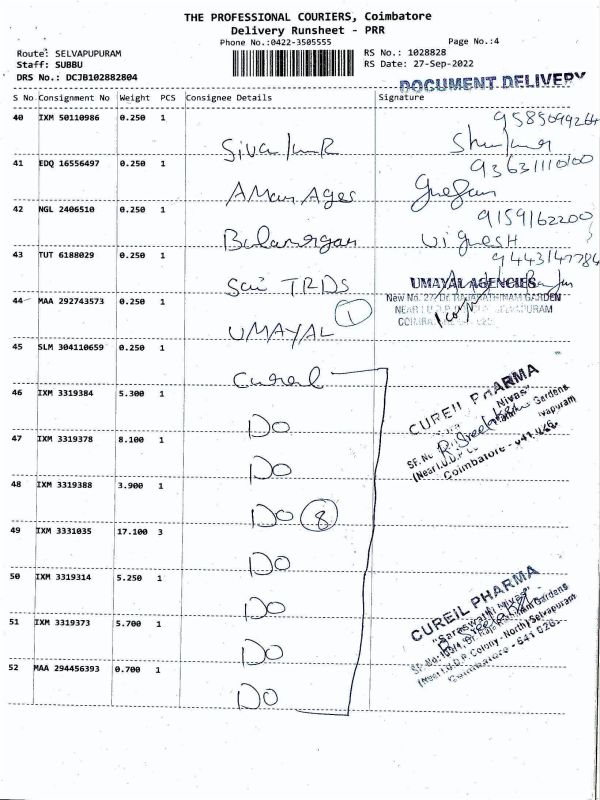 THE PROFESSIONAL COURIERS, Coimbatore
Delivery Runsheet - PRR
Phone No.:0422-3505555
Page No.:4
Route: SELVAPUPURAM
Staff: SUBBU
DRS No.: DCJB102882804
RS No.: 1028828
RS Date: 27-Sep-2022
DOCUMENT DELIVERY
S No Consignment No Weight PCS Consignee Details Signature
40 IXM 50110986 0.250 1
9585099264
41 EDQ 16556497 0.250 1
93631110100
AMan Ages
42 NGL 2406510 0.250 1
9159162200
Balamurgan Vignesh
43 TUT 6188029 0.250 1
Sai TRDS
44 MAA 292743573 0.250 1
UMAYAL AGENCIES
New No. 27, Dr. RAJARATHINAM GARDEN
1
UMAYAL
45 SLM 304110659 0.250 1
Cureil
46 IXM 3319384 5.300 1
CUREIL PHARMA
Nivas"
Gardens
Coimbatore - 641 026.
Do
47 IXM 3319378 8.100 1
Do
48 IXM 3319388 3.900 1
Do 8
49 IXM 3331035 17.100 3
Do
50 IXM 3319314 5.250 1
Do
51 IXM 3319373 5.700 1
CUREIL PHARMA
"Saraswathi Nivas"
(Near I.U.D.P. Colony - North) Selvapuram
Coimbatore - 641 026.
Do
52 MAA 294456393 0.700 1
Do